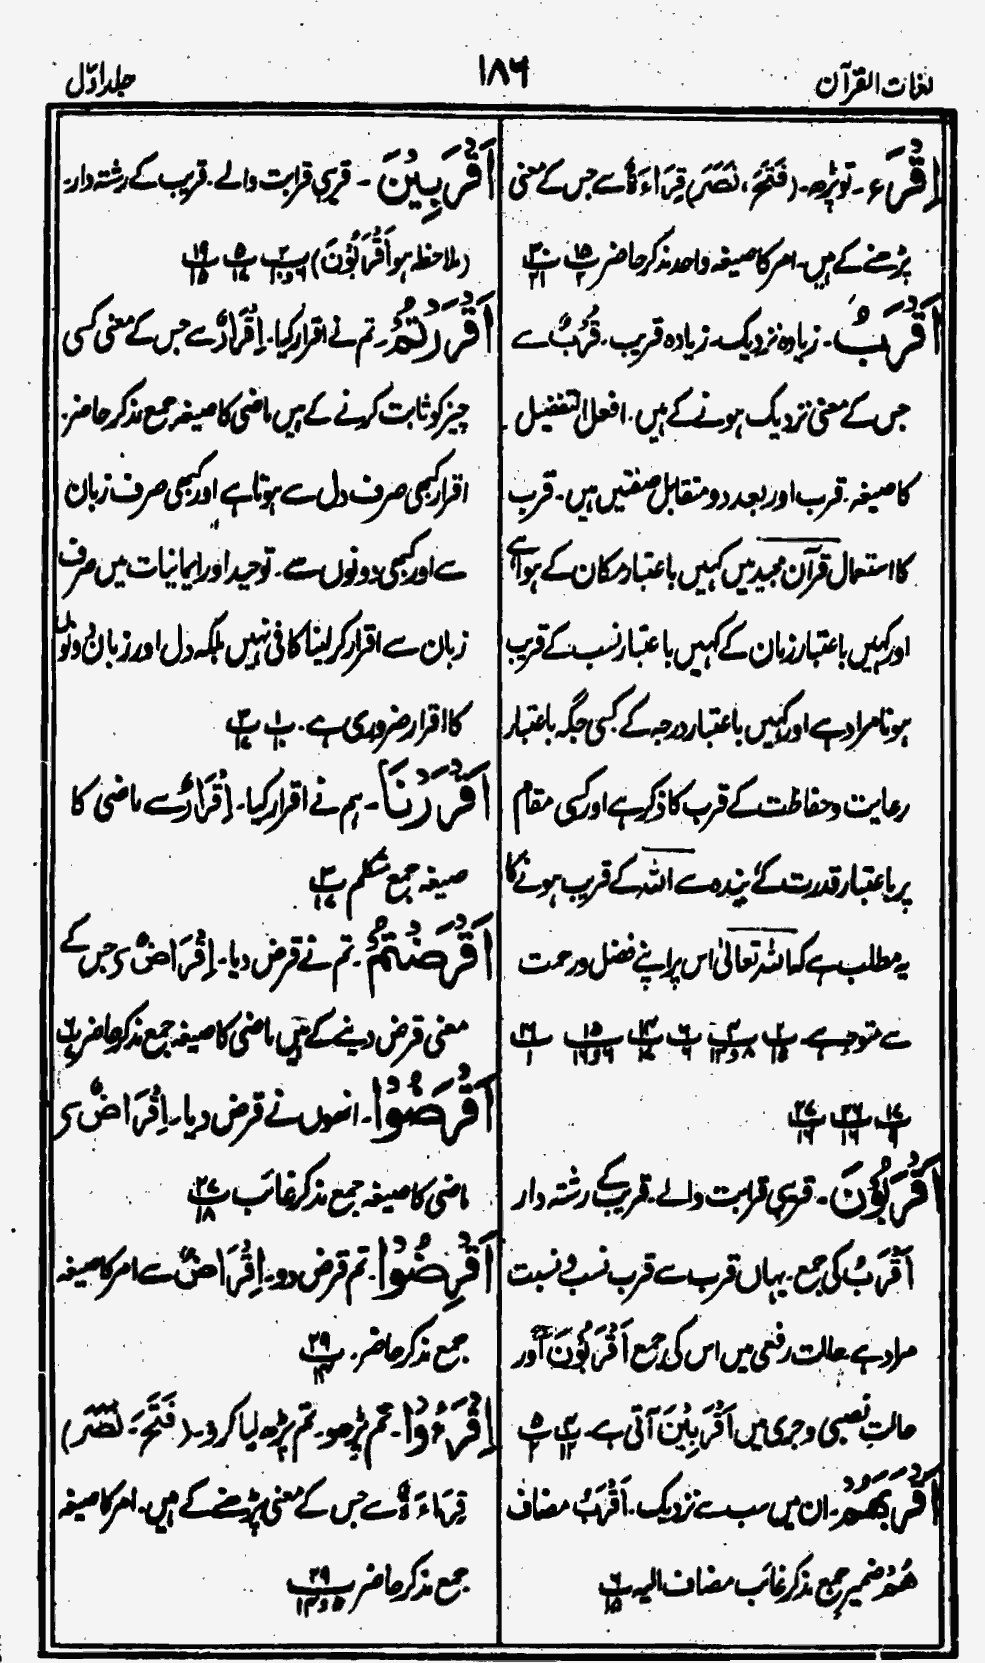 لغات القرآن
۱۸۶
جلد اوّل
اِقْرَءْ۔ تو پڑھ۔ (فَتَحَ، نَصَرَ) قِرَاءَۃٌ سے جس کے معنی
پڑھنے کے ہیں۔ امر کا صیغہ واحد مذکر حاضر پ ۱۵/۲ پ ۳۰/۲۱
اَقْرَبُ۔ زیادہ نزدیک۔ زیادہ قریب۔ قُرْبٌ سے
جس کے معنی نزدیک ہونے کے ہیں۔ افعل التفضیل
کا صیغہ۔ قرب اور بعد دو متقابل صفتیں ہیں۔ قرب
کا استعمال قرآن مجید میں کہیں باعتبار مکان کے ہوا ہے
اور کہیں باعتبار زمان کے کہیں باعتبار نسب کے قریب
ہونا مراد ہے اور کہیں باعتبار درجہ کے کسی جگہ باعتبار
رعایت و حفاظت کے قرب کا ذکر ہے اور کسی مقام
پر باعتبار قدرت کے بندہ سے اللہ کے قریب ہونے کا
یہ مطلب ہے کہ اللہ تعالیٰ اس پر اپنے فضل و رحمت
سے متوجہ ہے۔ پ ۲/۱۵ پ ۴/۸و۱۲ پ ۶/۶ پ ۱۴/۱۷ پ ۱۵/۶و۱۶ پ ۲۶/۱
پ ۱۷/۹ پ ۲۶/۱۶ پ ۲۷/۱۶
اَقْرَبُوْنَ۔ قریبی قرابت والے۔ قریب کے رشتہ دار
اَقْرَبُ کی جمع۔ یہاں قرب سے قرب نسب و نسبت
مراد ہے حالت رفعی میں اس کی جمع اَقْرَبُوْنَ آور
حالتِ نصبی و جری میں اَقْرَبِیْنَ آتی ہے۔ پ ۴/۱۲ پ ۵/۲
اَقْرَبَھُمْ۔ ان میں سب سے نزدیک۔ اَقْرَبُ مضاف
ھُمْ ضمیر جمع مذکر غائب مضاف الیہ پ ۶/۱۵
اَقْرَبِیْنَ۔ قریبی قرابت والے۔ قریب کے رشتہ دار۔
(ملاحظہ ہو اَقْرَبُوْنَ) پ ۲/۶و۱۰ پ ۵/۱۷ پ ۱۹/۱۵
اَقْرَرْتُمْ۔ تم نے اقرار کیا۔ اِقْرَارٌ سے جس کے معنی کسی
چیز کو ثابت کرنے کے ہیں ماضی کا صیغہ جمع مذکر حاضر۔
اقرار کبھی صرف دل سے ہوتا ہے اور کبھی صرف زبان
سے اور کبھی دونوں سے۔ توحید اور ایمانیات میں صرف
زبان سے اقرار کر لینا کافی نہیں بلکہ دل اور زبان دونوں
کا اقرار ضروری ہے۔ پ ۱/۱۰ پ ۳/۱۷
اَقْرَرْنَا۔ ہم نے اقرار کیا۔ اِقْرَارٌ سے ماضی کا
صیغہ جمع متکلم پ ۳/۱۷
اَقْرَضْتُمُ۔ تم نے قرض دیا۔ اِقْرَاضٌ سے جس کے
معنی قرض دینے کے ہیں ماضی کا صیغہ جمع مذکر حاضر پ ۶/۷
اَقْرَضُوْا۔ انھوں نے قرض دیا۔ اِقْرَاضٌ سے
ماضی کا صیغہ جمع مذکر غائب پ ۲۷/۱۸
اَقْرِضُوْا۔ تم قرض دو۔ اِقْرَاضٌ سے امر کا صیغہ
جمع مذکر حاضر۔ پ ۲۹/۱۴
اِقْرَءُوْا۔ تم پڑھو۔ تم پڑھ لیا کرو۔ (فَتَحَ۔ نَصَرَ)
قِرَاءَۃٌ سے جس کے معنی پڑھنے کے ہیں۔ امر کا صیغہ
جمع مذکر حاضر پ ۲۹/۵و۱۴